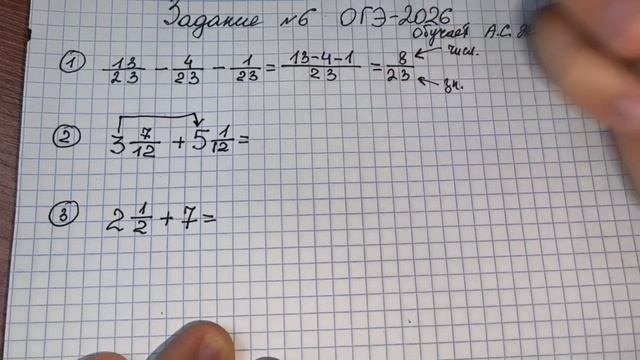 Задание №6 ОГЭ-2026
Обучает А.С.
① 13/23 - 4/23 - 1/23 = 13-4-1/23 = 8/23 ← числ. ← зн.
② 3 7/12 + 5 1/12 =
③ 2 1/2 + 7 =